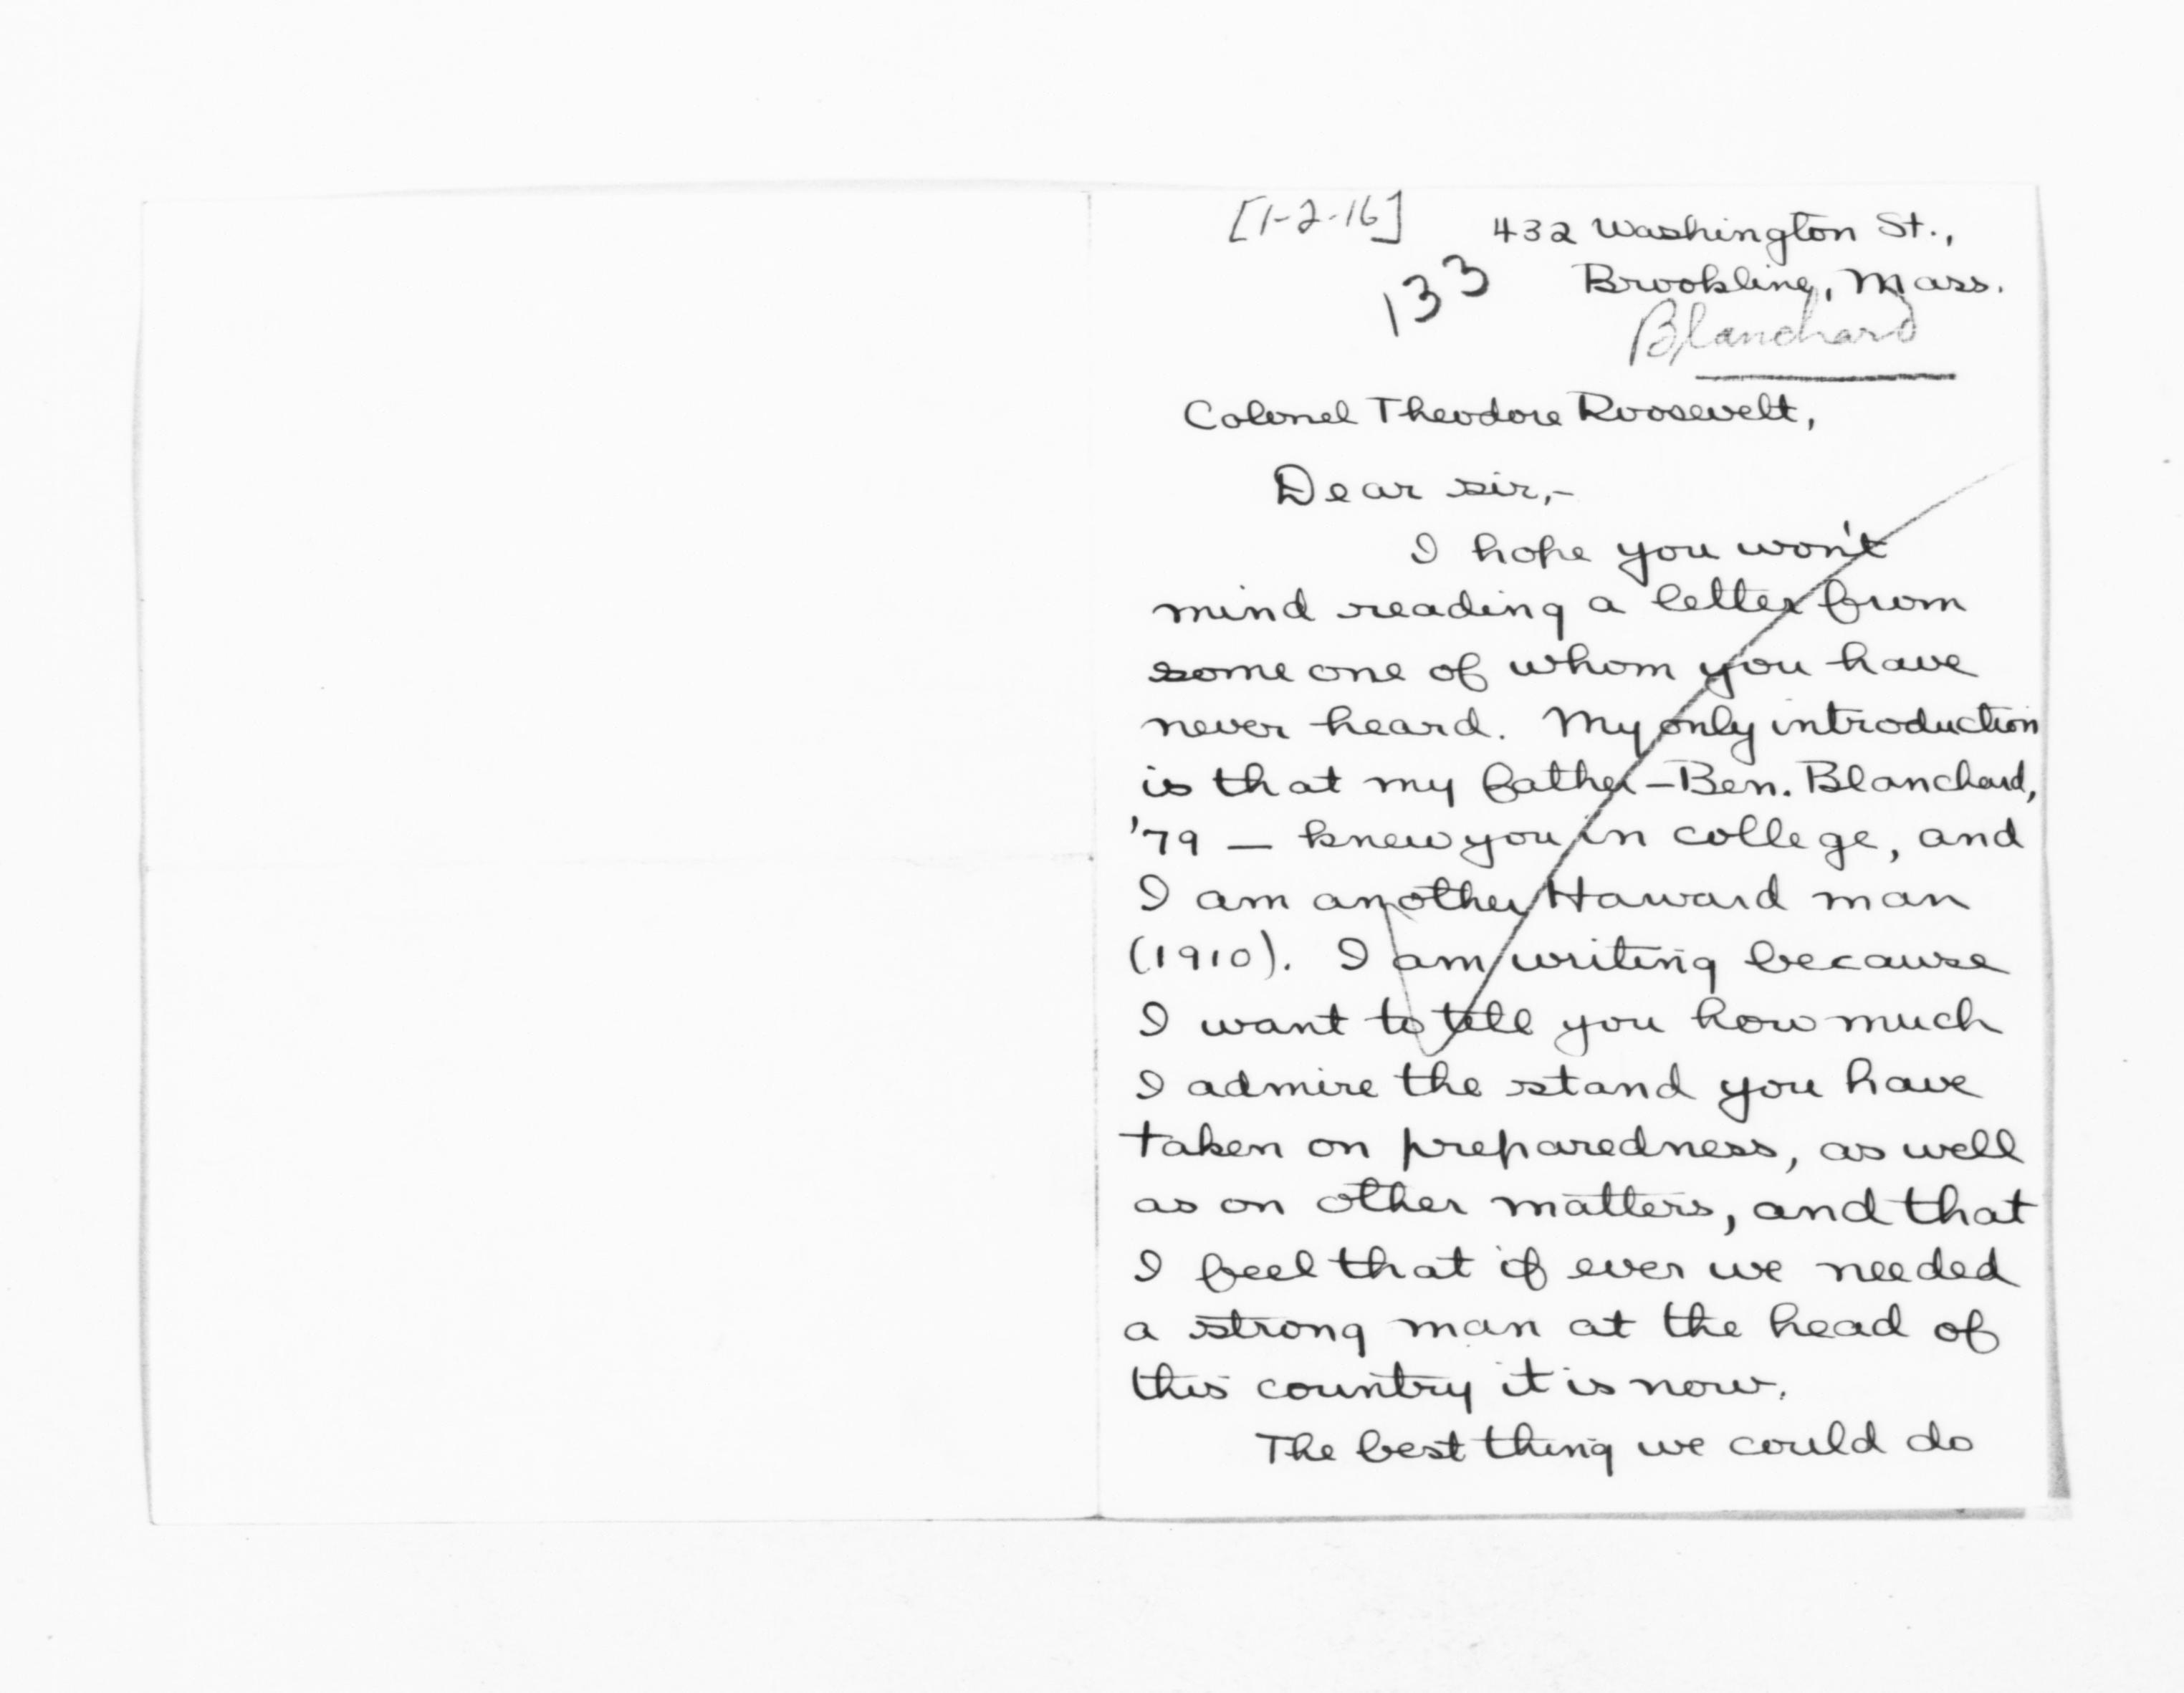 [1-2-16]
432 Washington St.,
133
Brookline, Mass.
Blanchard
Colonel Theodore Roosevelt,
Dear sir,-
I hope you won't
mind reading a letter from
some one of whom you have
never heard. My only introduction
is that my father - Ben. Blanchard,
'79 - knew you in college, and
I am another Harvard man
(1910). I am writing because
I want to tell you how much
I admire the stand you have
taken on preparedness, as well
as on other matters, and that
I feel that if ever we needed
a strong man at the head of
this country it is now.
The best thing we could do